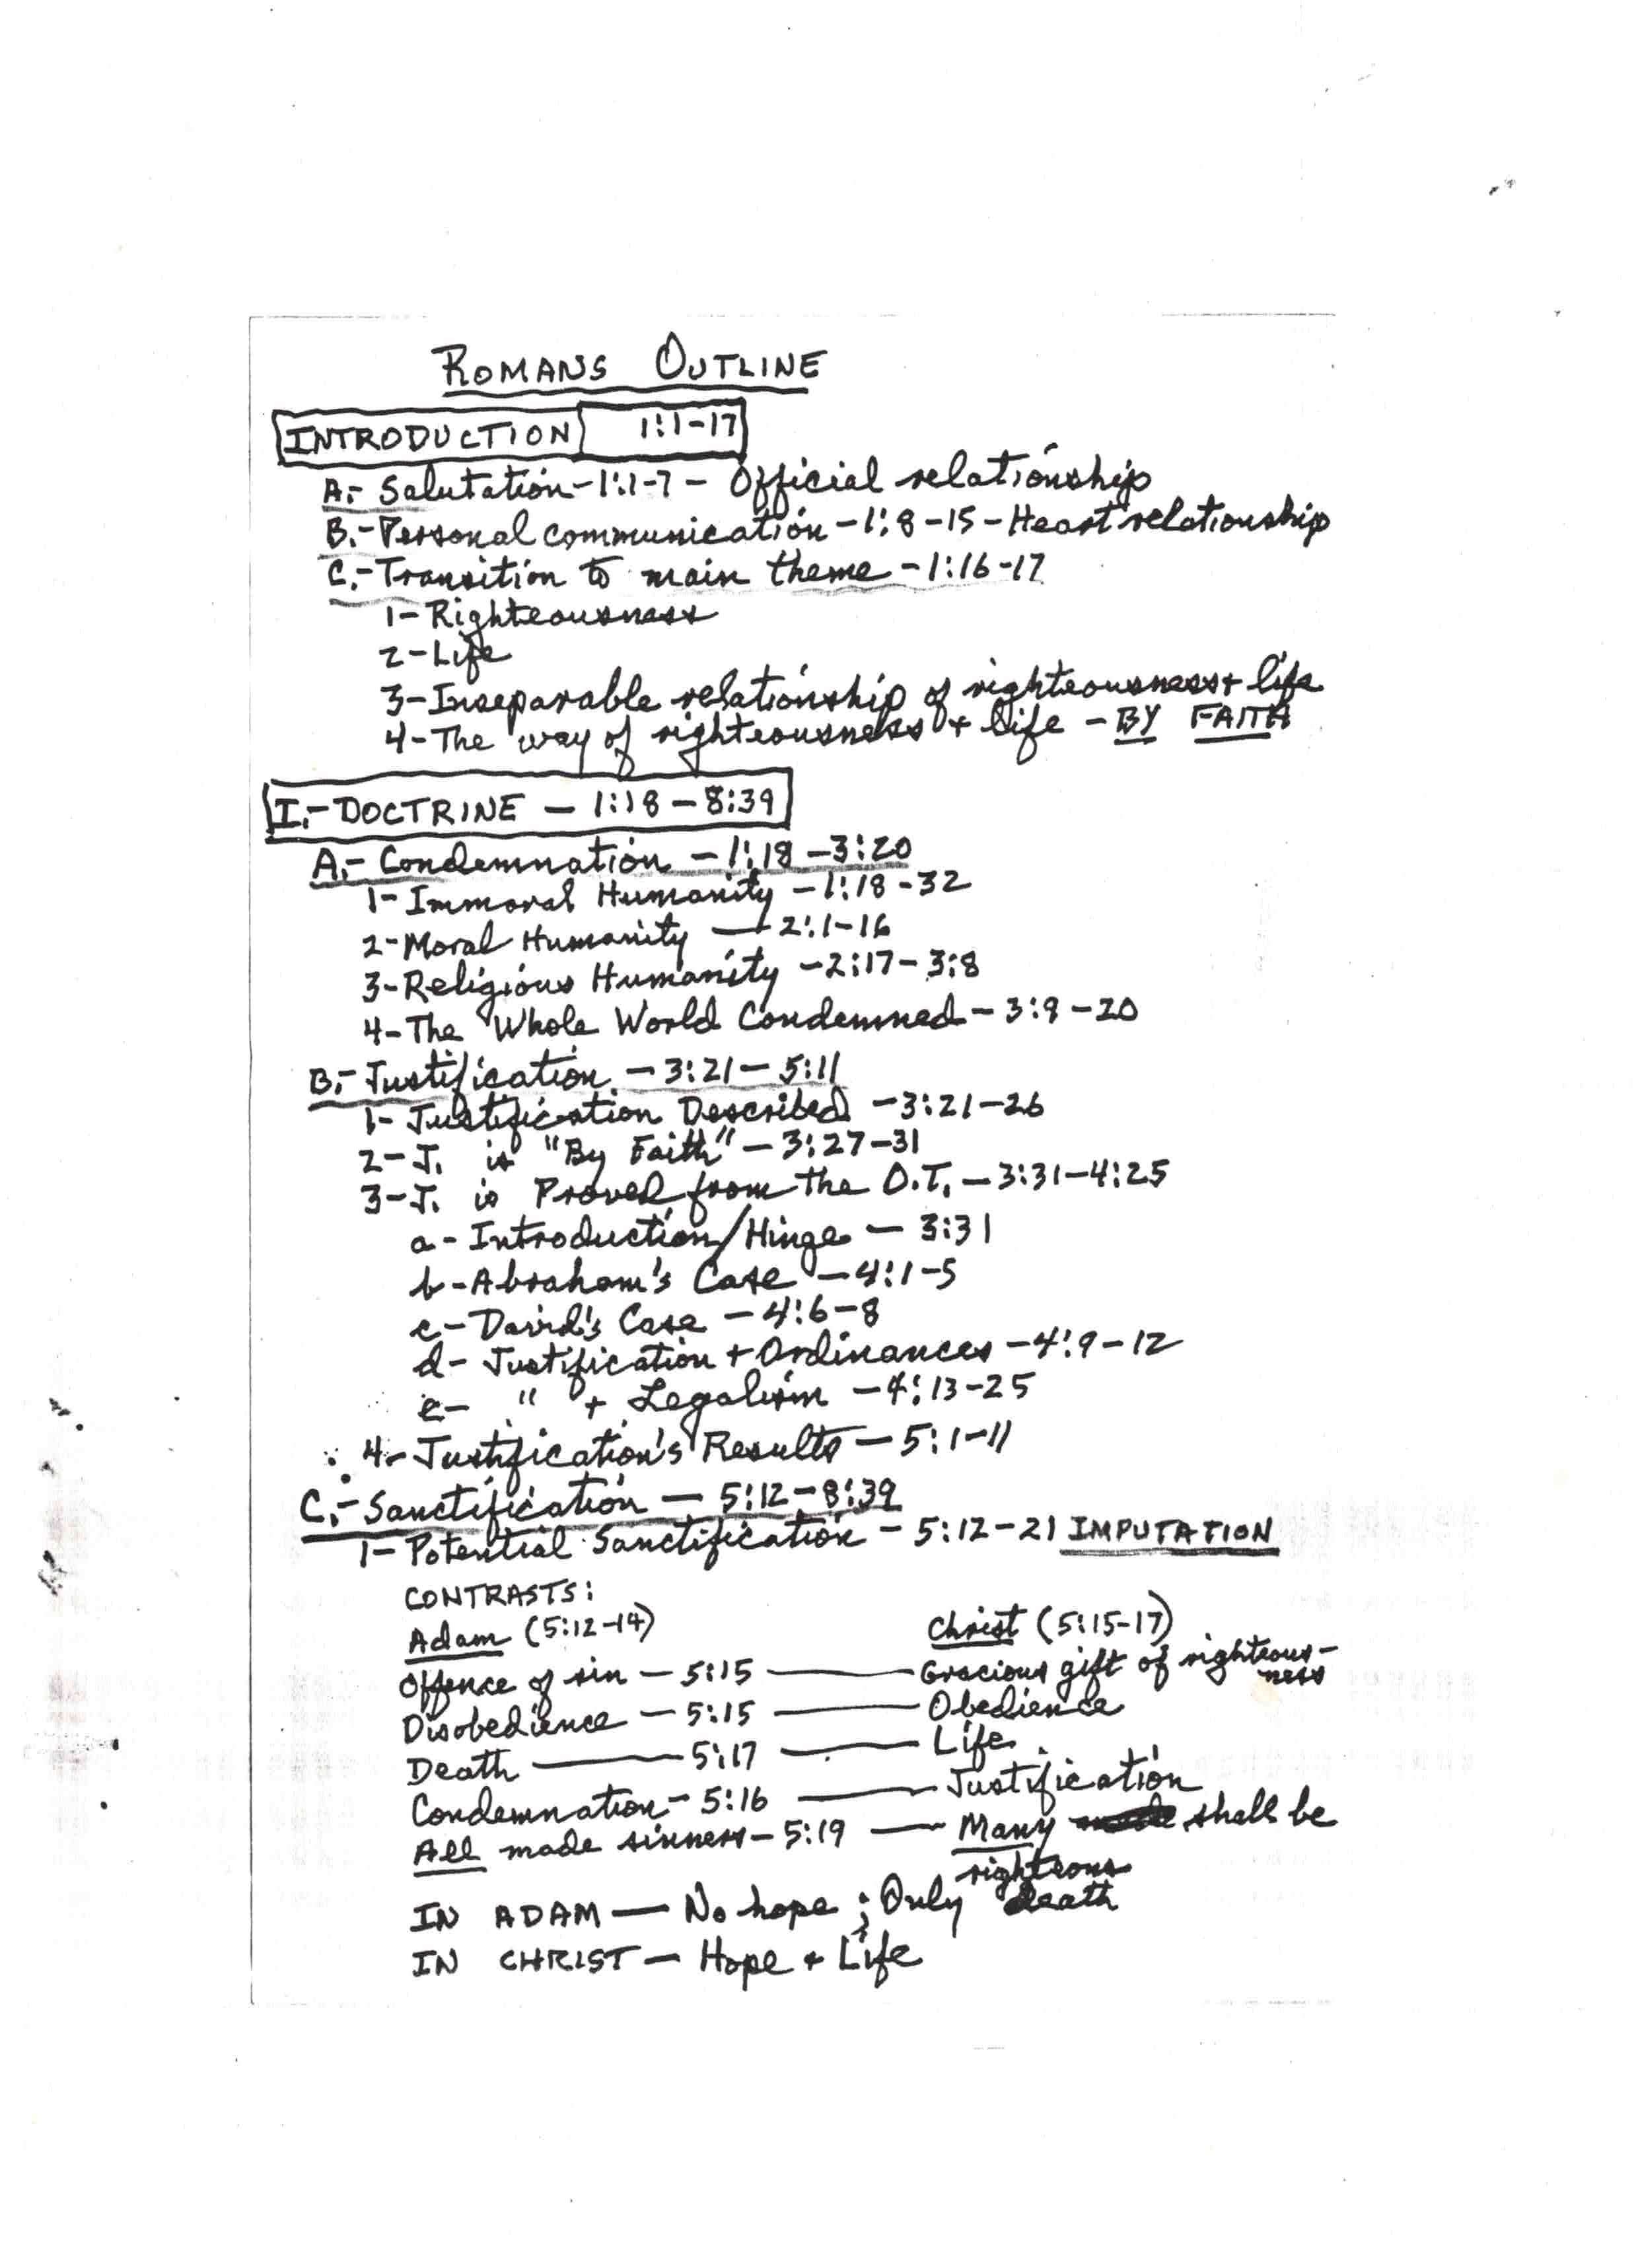 ROMANS OUTLINE
INTRODUCTION 1:1-17
A.- Salutation - 1:1-7 - Official relationship
B.- Personal communication - 1:8-15 - Heart relationship
C.- Transition to main theme - 1:16-17
1- Righteousness
2- Life
3- Inseparable relationship of righteousness + life
4- The way of righteousness + life - BY FAITH
I.- DOCTRINE - 1:18 - 8:39
A.- Condemnation - 1:18 - 3:20
1- Immoral Humanity - 1:18-32
2- Moral Humanity - 2:1-16
3- Religious Humanity - 2:17-3:8
4- The Whole World Condemned - 3:9-20
B.- Justification - 3:21 - 5:11
1- Justification Described - 3:21-26
2- J. is "By Faith" - 3:27-31
3- J. is Proved from the O.T. - 3:31-4:25
a- Introduction/Hinge - 3:31
b- Abraham's Case - 4:1-5
c- David's Case - 4:6-8
d- Justification + Ordinances - 4:9-12
e- " + Legalism - 4:13-25
4- Justification's Results - 5:1-11
C.- Sanctification - 5:12-8:39
1- Potential Sanctification - 5:12-21 IMPUTATION
CONTRASTS:
Adam (5:12-14) Christ (5:15-17)
Offence of sin - 5:15 — Gracious gift of righteous-
ness
Disobedience - 5:15 — Obedience
Death — 5:17 — Life
Condemnation - 5:16 — Justification
All made sinners - 5:19 — Many shall be
righteous
IN ADAM - No hope; Only death
IN CHRIST - Hope + Life